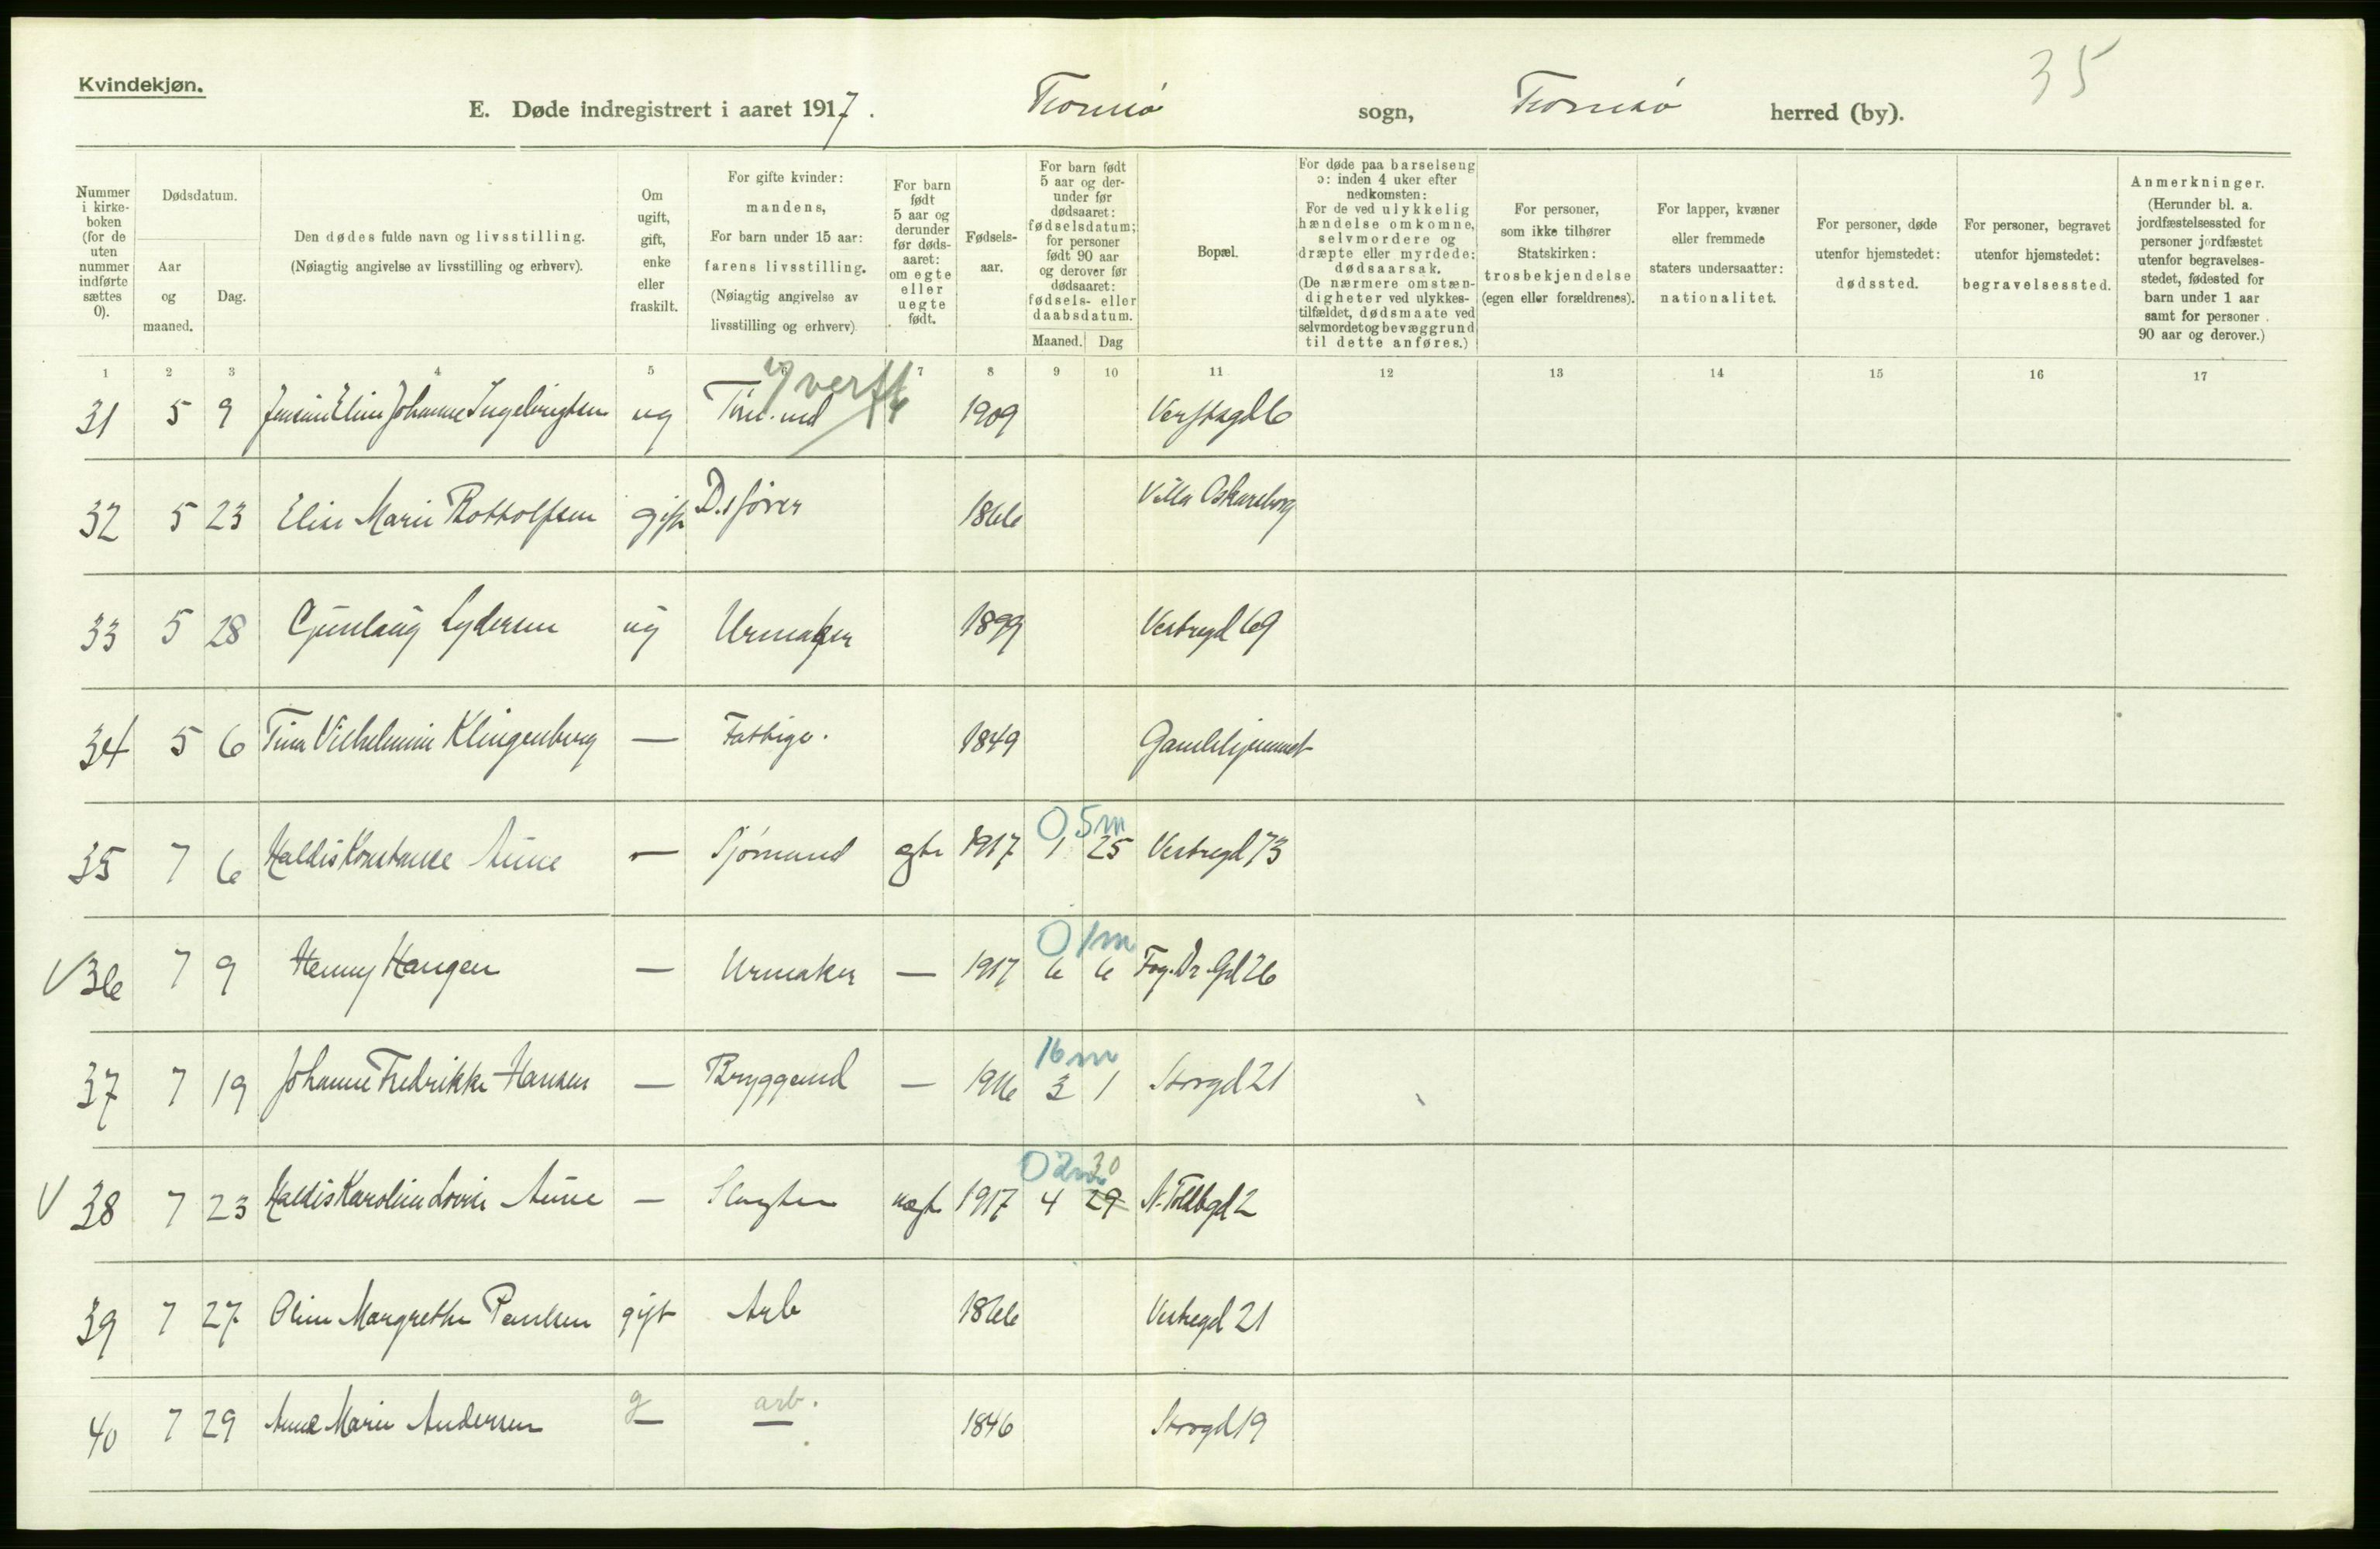 35
Kvindekjøn.
E. Døde indregistrert i aaret 1917. Tromsø sogn, Tromsø herred (by).
Nummer i kirkeboken (for de uten nummer indførte sættes 0).
Dødsdatum.
Aar og maaned.
Dag.
Den dødes fulde navn og livsstilling.
(Nøiagtig angivelse av livsstilling og erhverv).
Om ugift, gift, enke eller fraskilt.
For gifte kvinder: mandens,
For barn under 15 aar: farens livsstilling.
(Nøiagtig angivelse av livsstilling og erhverv)
For barn født 5 aar og derunder før dødsaaret: om egte eller uegte født.
Fødselsaar.
For barn født 5 aar og derunder før dødsaaret: fødselsdatum; for personer født 90 aar og derover før dødsaaret: fødsels- eller daabsdatum.
Maaned. Dag
Bopæl.
For døde paa barselseng ɔ: inden 4 uker efter nedkomsten:
For de ved ulykkelig hændelse omkomne, selvmordere og dræpte eller myrdede: dødsaarsak.
(De nærmere omstændigheter ved ulykkestilfældet, dødsmaate ved selvmordet og bevæggrund til dette anføres.)
For personer, som ikke tilhører Statskirken: trosbekjendelse (egen eller forældrenes).
For lapper, kvæner eller fremmede staters undersaatter: nationalitet.
For personer, døde utenfor hjemstedet: dødssted.
For personer, begravet utenfor hjemstedet: begravelsessted.
Anmerkninger.
(Herunder bl. a. jordfæstelsessted for personer jordfæstet utenfor begravelsesstedet, fødested for barn under 1 aar samt for personer 90 aar og derover.)
1 2 3 4 5 7 8 9 10 11 12 13 14 15 16 17
verft
31 5 9 Elise Johanne Ingebrigtsen ug Tøm.md 1909 Verftsgd 6
32 5 23 Elise Marie Rotvolfsen gift D.sfører 1866 Villa Oskarsborg
33 5 28 Gunlaug Lydersen ug Urmaker 1899 Vestregd 69
34 5 6 Tina Vilhelmine Klingenberg — Fattige. 1849 Gamlehjemmet
0 5m
35 7 6 Haldis Konstanse Aune — Sjømand egte 1917 1 25 Vestregd 73
0 1m
V 36 7 9 Henny Haugen — Urmaker — 1917 6 6 Fog.Dr.Gd 26
16 m
37 7 19 Johanne Fredrikke Hansen — Bryggemd — 1916 3 1 Storgd 21
0 2m 30
V 38 7 23 Haldis Karoline Lovise Aune — Slagter uegt 1917 4 29 N. Toldbgd 2
39 7 27 Oline Margrethe Paulsen gift Arb 1866 Vestregd 21
40 7 29 Anna Marie Andersen g arb. 1846 Storgd 19